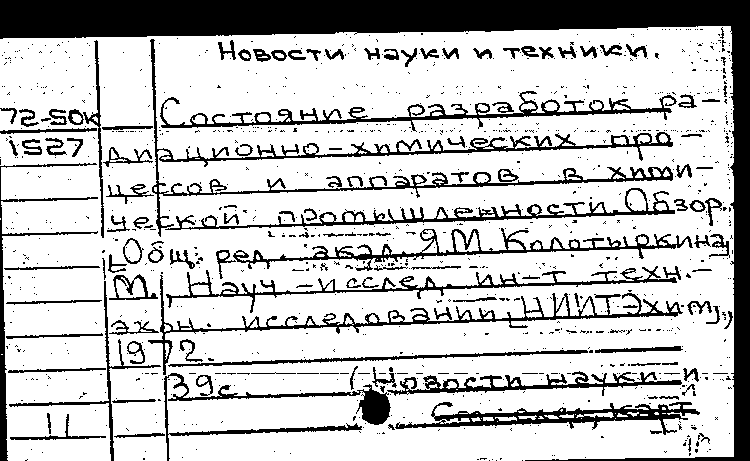 Новости науки и техники.
72-50к Состояние разработок ра-
1527 диационно-химических про-
цессов и аппаратов в хими-
ческой промышленности. Обзор.
[Общ. ред. акад. Я.М. Колотыркина]
М., Науч.-исслед. ин-т техн.-
экон. исследований, [НИИТЭхим],
1972.
39с. (Новости науки и
11 См. след. карт